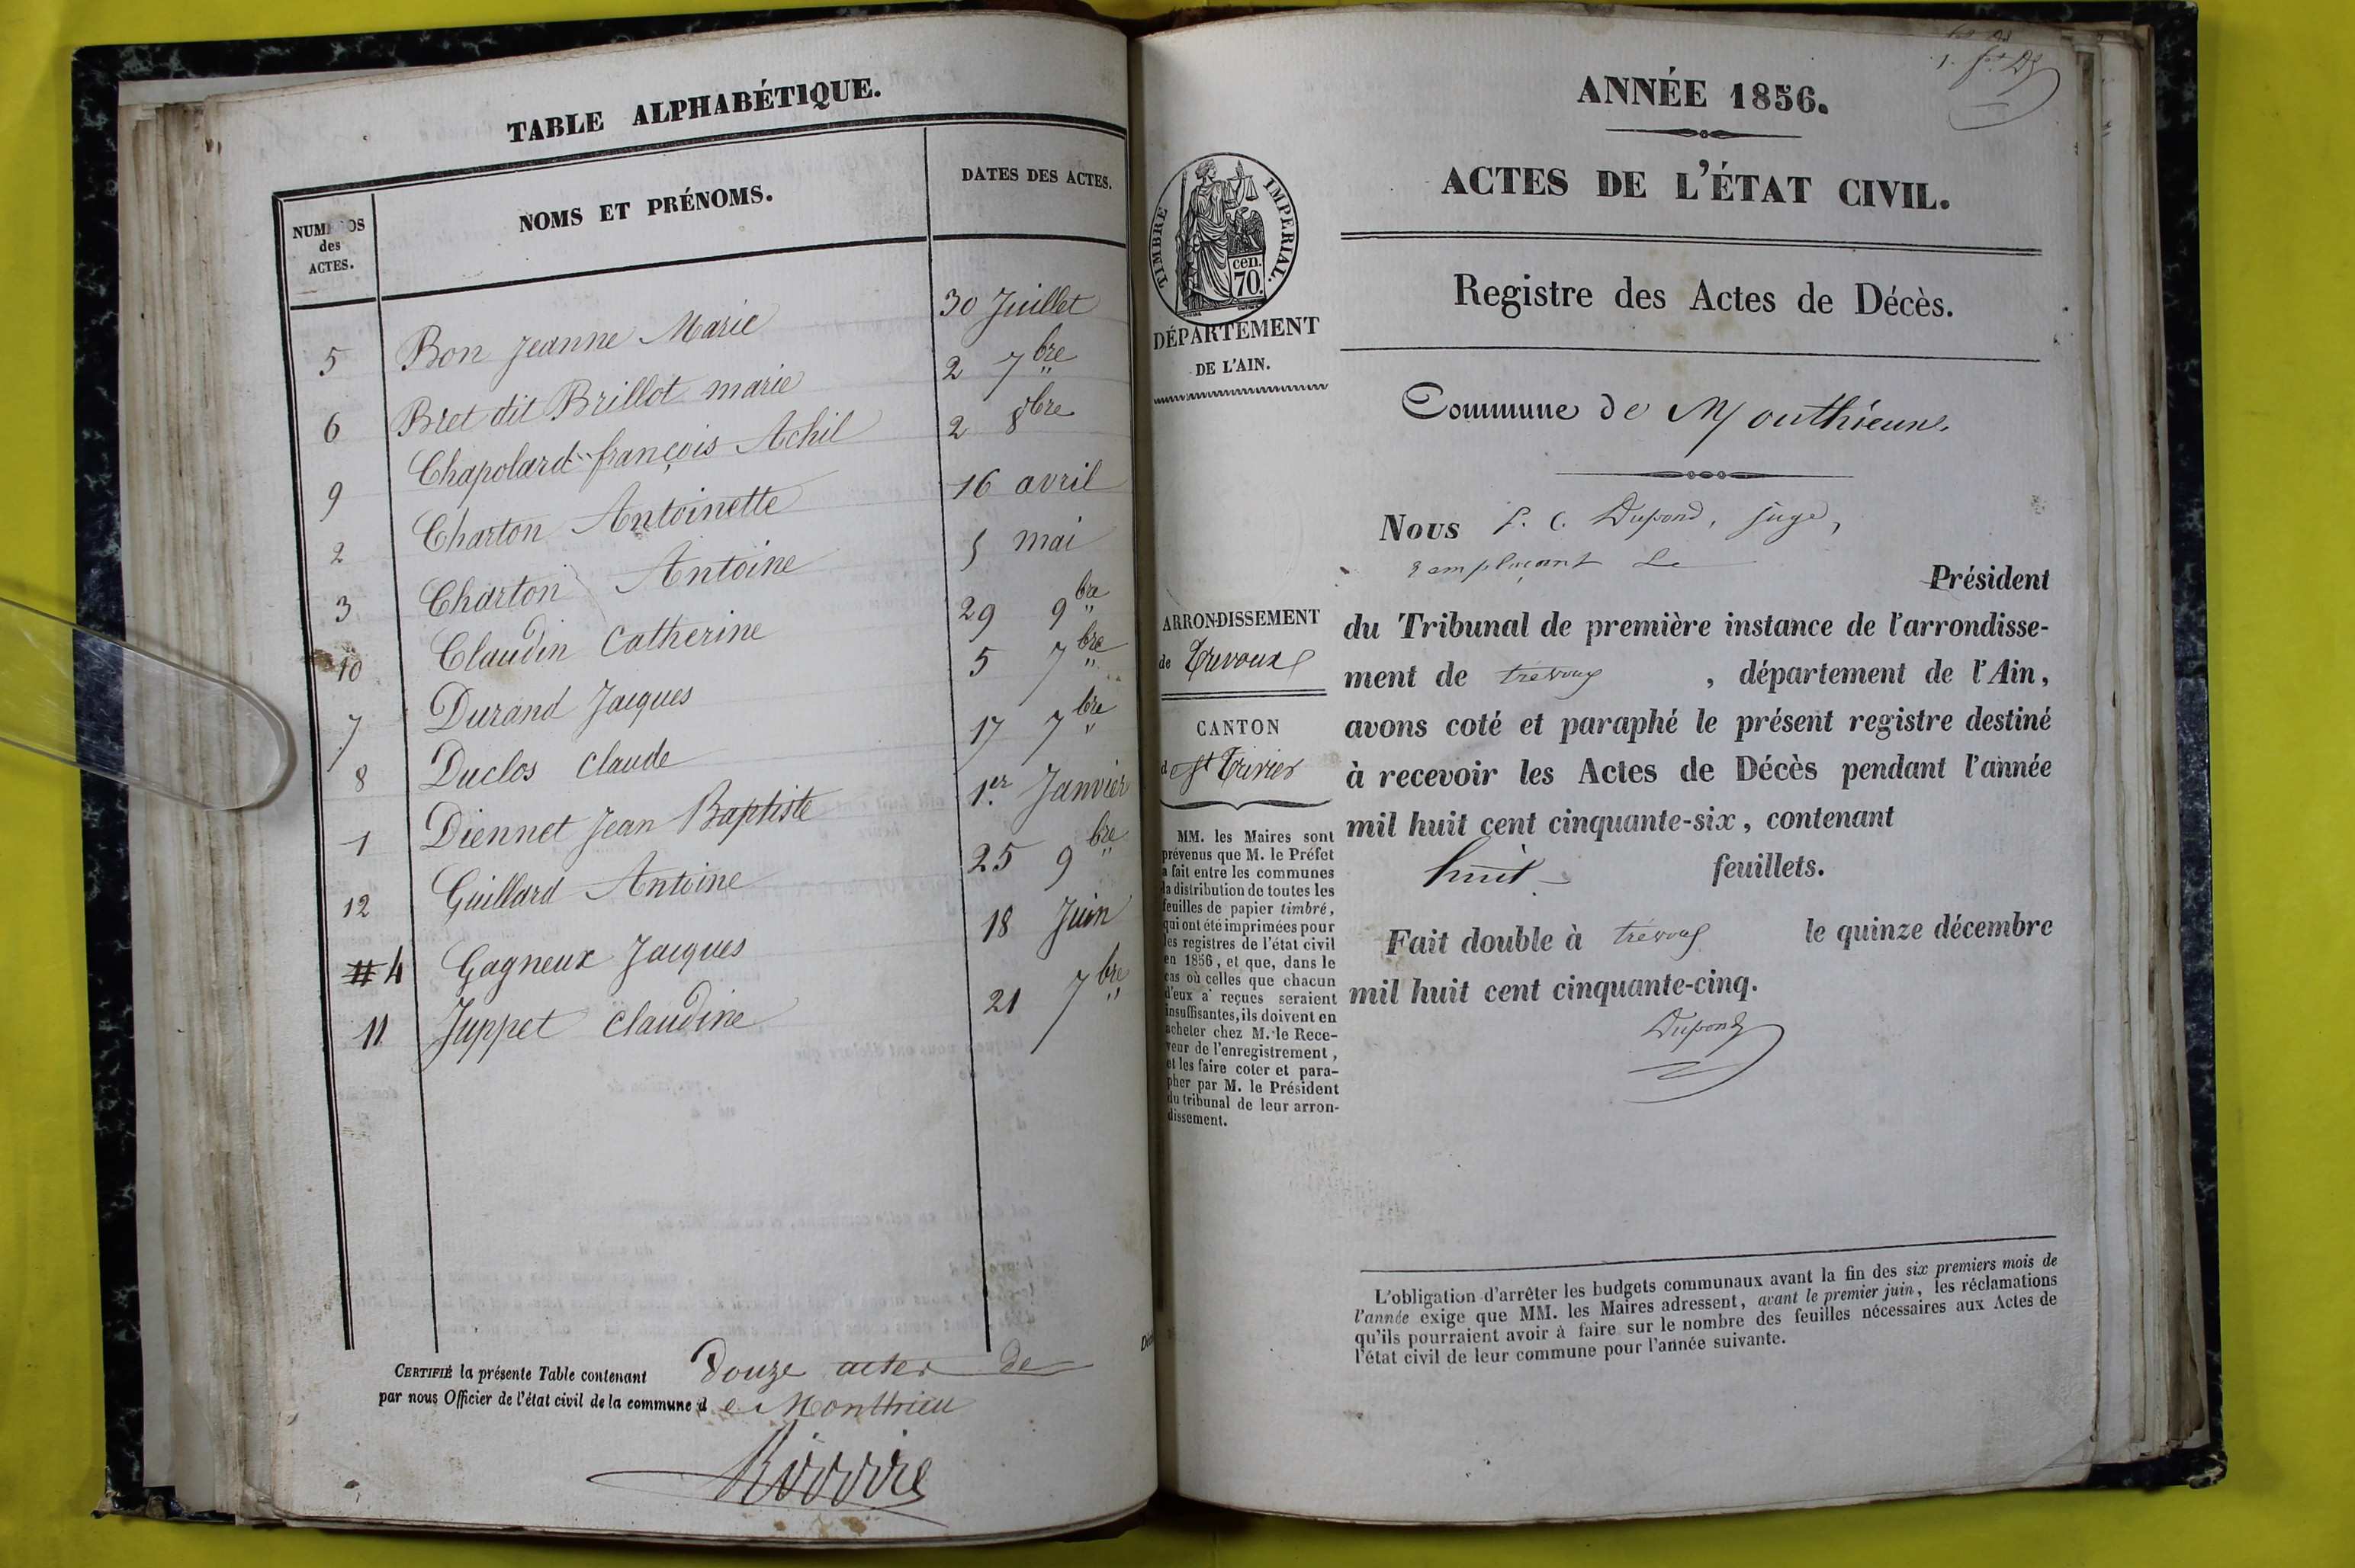 TABLE ALPHABÉTIQUE.
NUMÉROS des ACTES. NOMS ET PRÉNOMS. DATES DES ACTES.
5 Bon Jeanne Marie 30 Juillet
6 Bret dit Brillot marie 2 7bre
9 Chapolard françois Achil 2 8bre
2 Charton Antoinette 16 avril
3 Charton Antoine 5 mai
10 Claudin Catherine 29 9bre
7 Durand Jacques 5 7bre
8 Duclos Claude 17 7bre
1 Diennet Jean Baptiste 1er Janvier
12 Guillard Antoine 25 9bre
4 Gagneux Jacques 18 Juin
11 Juppet Claudine 21 7bre
CERTIFIÉ la présente Table contenant Douze actes de
par nous Officier de l'état civil de la commune de Monthieu
ANNÉE 1856.
ACTES DE L'ÉTAT CIVIL.
Registre des Actes de Décès.
TIMBRE IMPERIAL.
cen.
70.
DÉPARTEMENT
DE L'AIN.
Commune de Monthieune
Nous P. C. Dupond, juge,
remplaçant Le
Président
du Tribunal de première instance de l'arrondisse-
ment de trévoux, département de l'Ain,
avons coté et paraphé le présent registre destiné
à recevoir les Actes de Décès pendant l'année
mil huit cent cinquante-six, contenant
huit feuillets.
Fait double à trévoux le quinze décembre
mil huit cent cinquante-cinq.
Dupond
ARRONDISSEMENT
de Trévoux
CANTON
de St Trivier
MM. les Maires sont
prévenus que M. le Préfet
a fait entre les communes
la distribution de toutes les
feuilles de papier timbré,
qui ont été imprimées pour
les registres de l'état civil
en 1856, et que, dans le
cas où celles que chacun
d'eux a reçues seraient
insuffisantes, ils doivent en
acheter chez M. le Rece-
veur de l'enregistrement,
et les faire coter et para-
pher par M. le Président
du tribunal de leur arron-
dissement.
L'obligation d'arrêter les budgets communaux avant la fin des six premiers mois de
l'année exige que MM. les Maires adressent, avant le premier juin, les réclamations
qu'ils pourraient avoir à faire sur le nombre des feuilles nécessaires aux Actes de
l'état civil de leur commune pour l'année suivante.